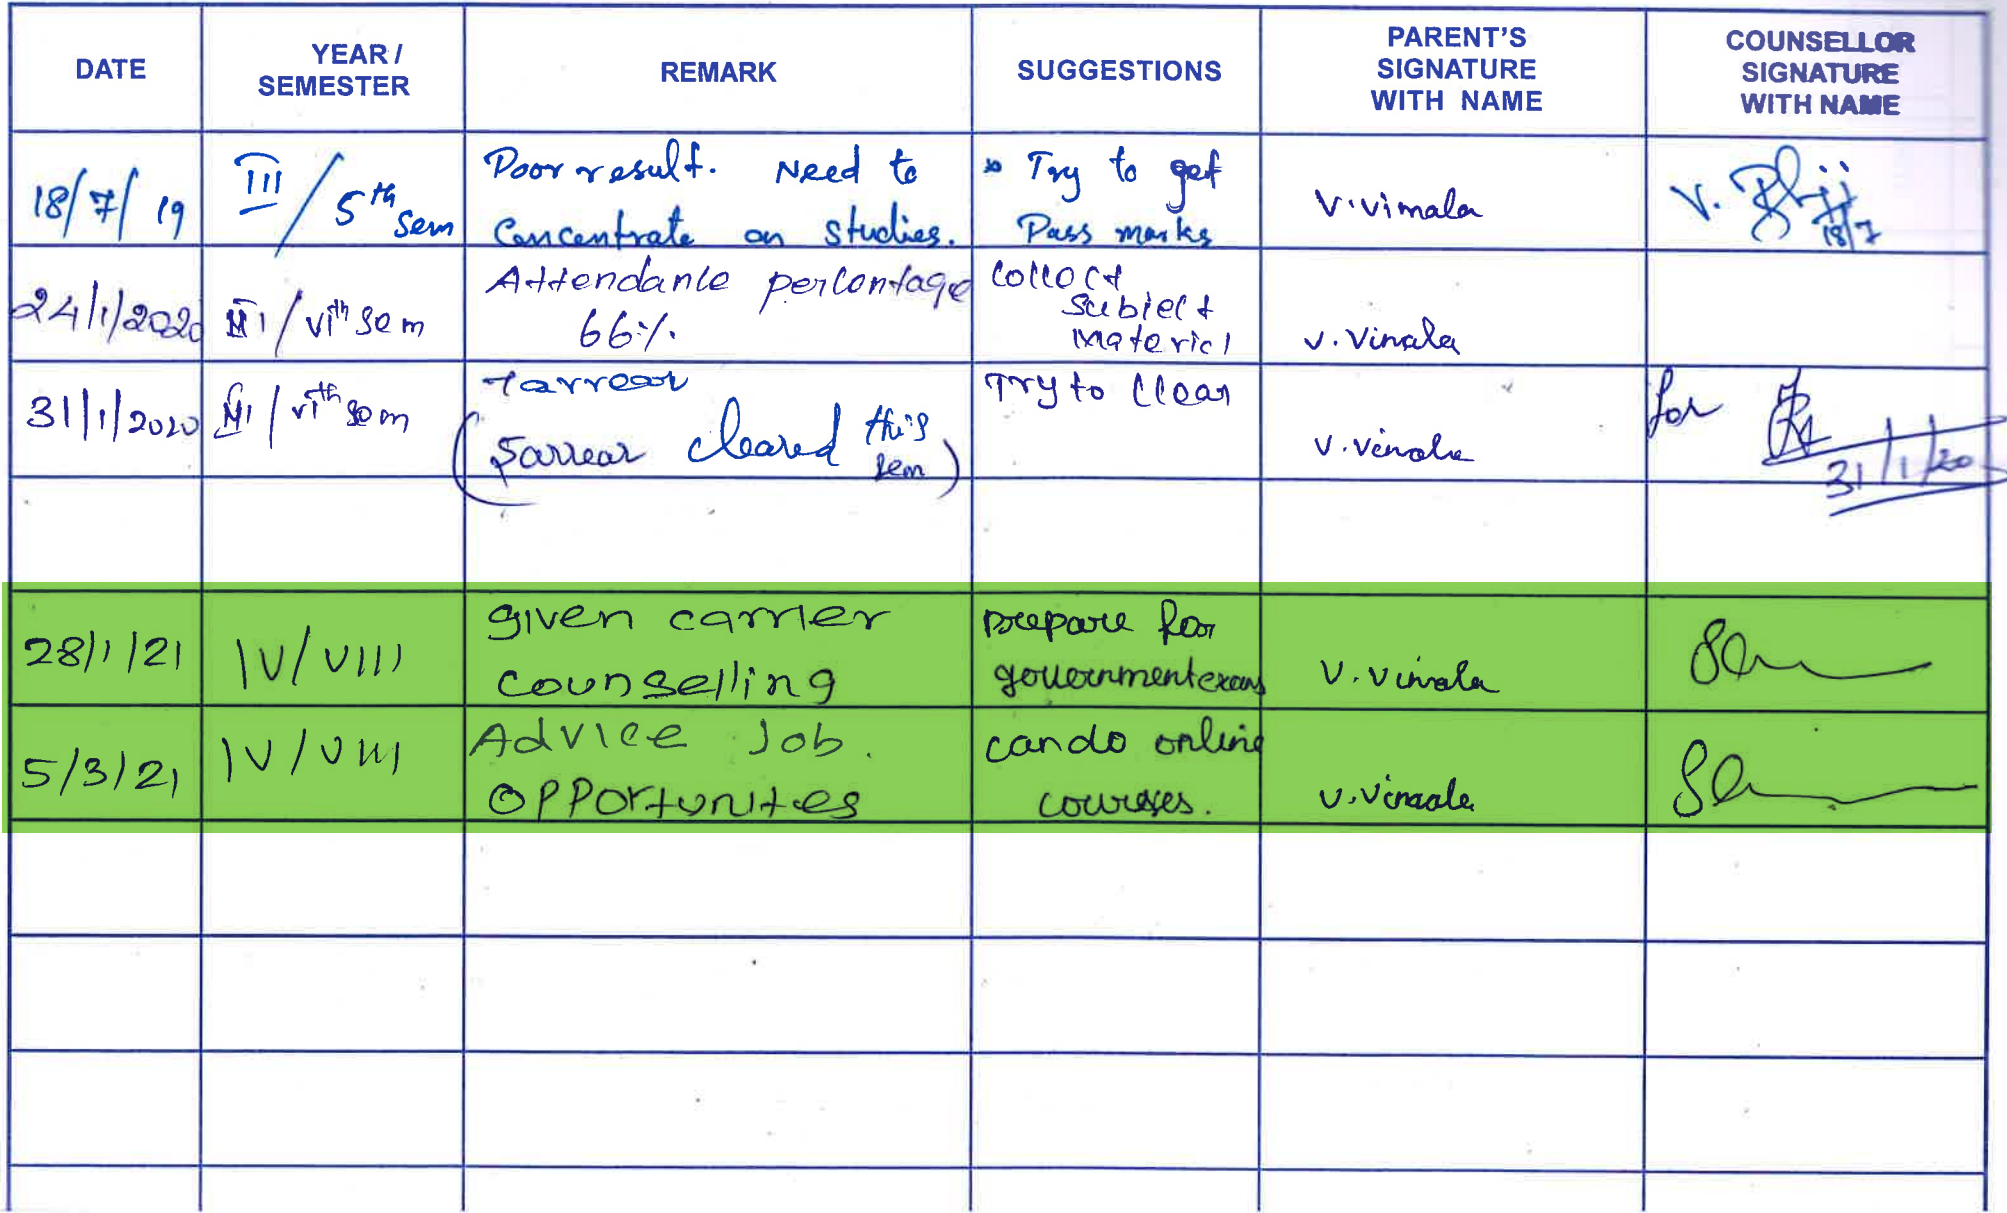 DATE
YEAR /
SEMESTER
REMARK
SUGGESTIONS
PARENT'S
SIGNATURE
WITH NAME
COUNSELLOR
SIGNATURE
WITH NAME
18/7/19
III / 5th sem
Poor result. Need to
Concentrate on studies.
Try to get
Pass marks
V.Vimala
V.
18/7
24/1/2020
III / VIth sem
Attendance percentage
66%.
collect
subject
material
V. Vimala
31/1/2020
III / VIth sem
7arrear
(5arrear cleared this
sem)
Try to clear
V. Vimala
for
31/1/20
28/1/21
IV/VIII
given carrier
counselling
prepare for
government exams
V. Vimala
5/3/21
IV/VIII
Advice Job.
opportunities
can do online
courses.
V. Vimala